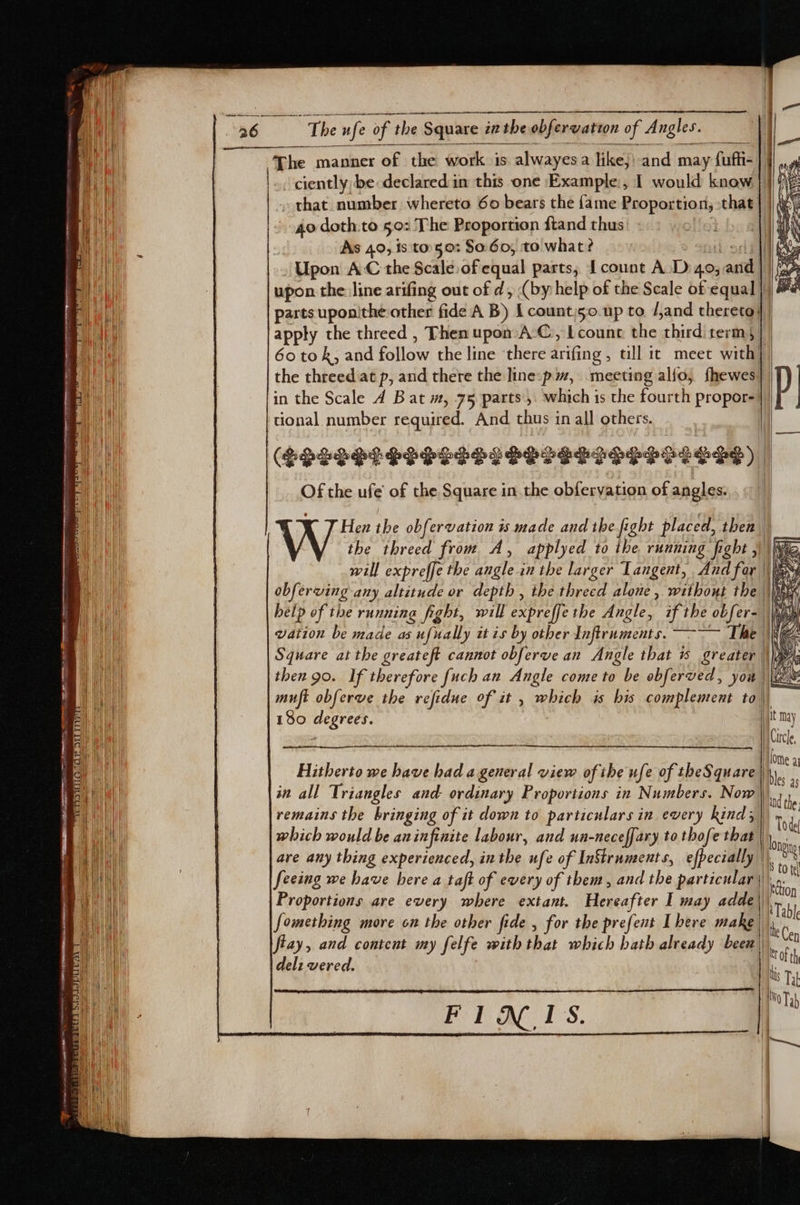 26 The uſe of the Square in the obſervation of Angles.
The manner of the work is alwayes a like, and may ſuffi-
ciently be declared in this one Example, I would know
that number whereto 60 bears the ſame Proportion, that
40 doth to 50: The Proportion ſtand thus
As 40, is to 50: So 60, to what?
Upon A C the Scale of equal parts, I count A D 40, and
upon the line ariſing out of d, (by help of the Scale of equal
parts upon the other ſide A B) I count 50 up to l, and thereto
apply the threed, Then upon A C, I count the third term,
60 to k, and follow the line there ariſing, till it meet with
the threed at p, and there the line p m, meeting alſo, ſhewes
in the Scale A B at m, 75 parts, which is the fourth propor-
tional number required. And thus in all others.
Of the uſe of the Square in the obſervation of angles.
WHen the obſervation is made and the ſight placed, then
the threed from A, applyed to the running ſight,
will expreſſe the angle in the larger Tangent, And for
obſerving any altitude or depth, the threed alone, without the
help of the running ſight, will expreſſe the Angle, if the obſer-
vation be made as uſually it is by other Inſtruments. —— The
Square at the greateſt cannot obſerve an Angle that is greater
then 90. If therefore ſuch an Angle come to be obſerved, you
muſt obſerve the reſidue of it, which is his complement to
180 degrees.
Hitherto we have had a general view of the uſe of the Square
in all Triangles and ordinary Proportions in Numbers. Now
remains the bringing of it down to particulars in every kind;
which would be an infinite labour, and un-neceſſary to thoſe that
are any thing experienced, in the uſe of Inſtruments, eſpecially
ſeeing we have here a taſt of every of them, and the particular
Proportions are every where extant. Hereafter I may adde
ſomething more on the other ſide, for the preſent I here make
ſtay, and content my ſelfe with that which hath already been
deli vered.
FINIS.
it may
Circle.